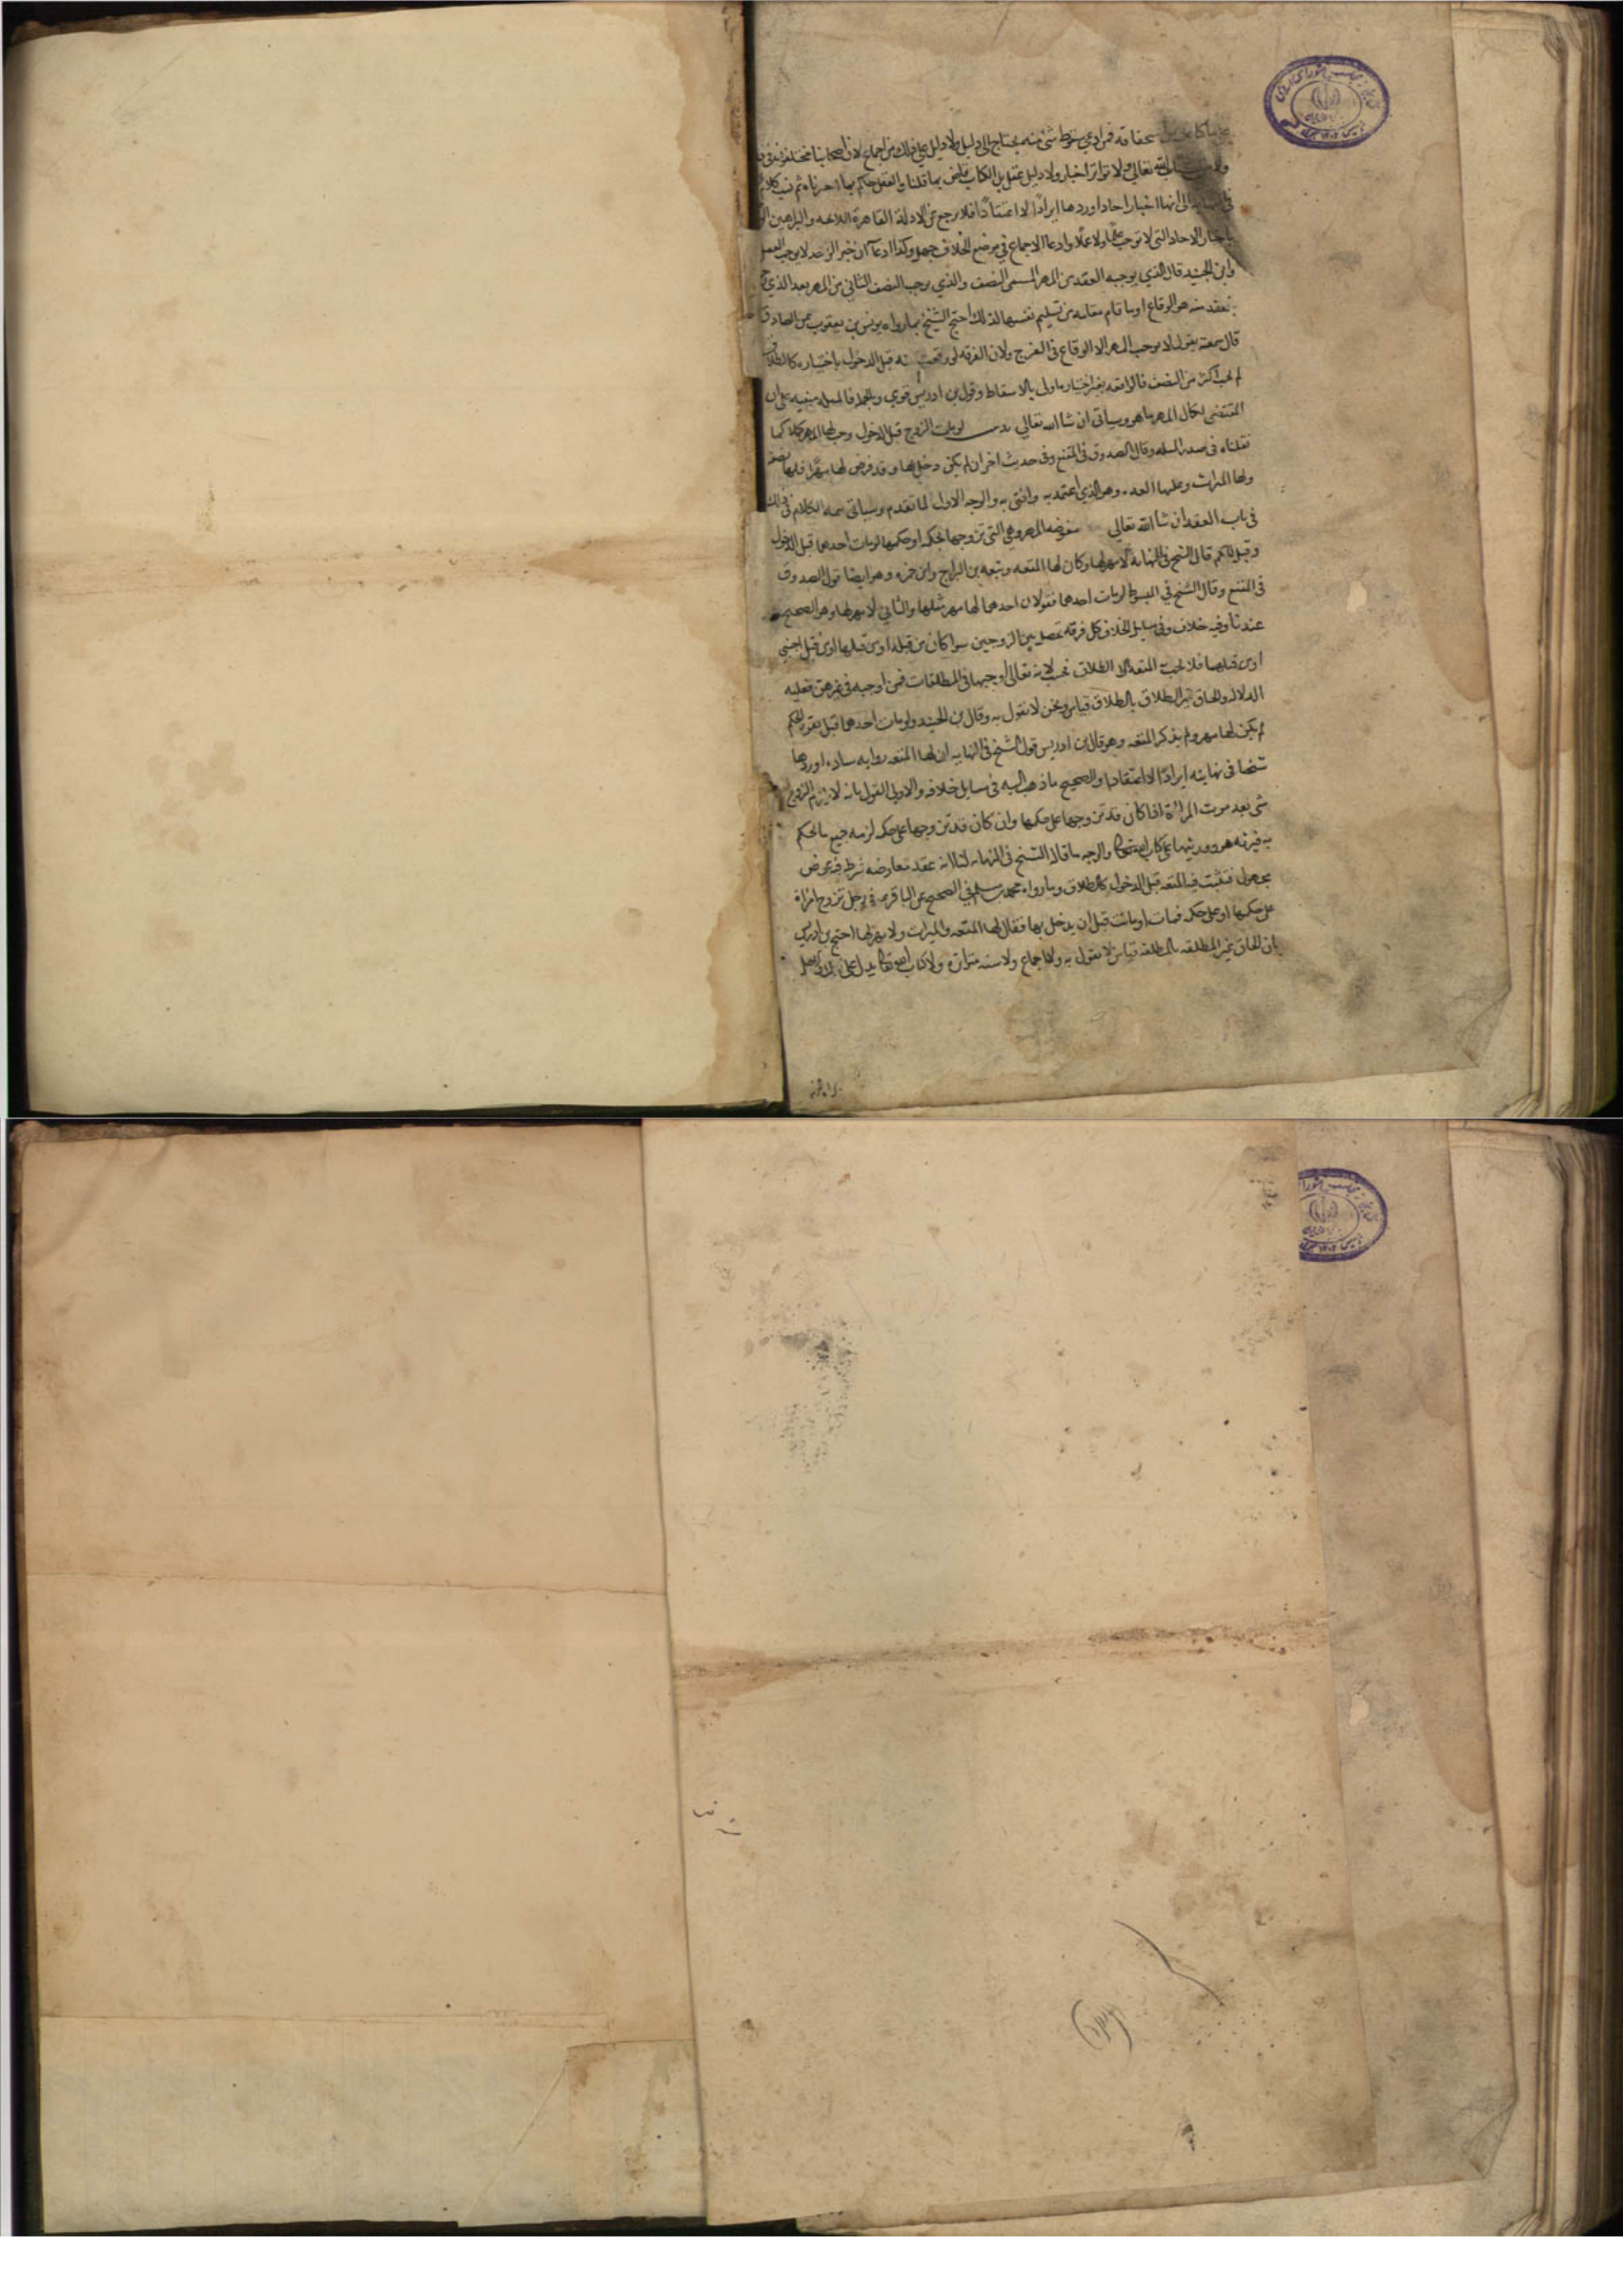 استحقاقه فمن ادعي سقوط شئ منه يحتاج الي دليل ولا دليل علي ذلك من اجماع لان اصحابنا مختلفون في
الله تعالي ولا تواتر اخبار ولا دليل عقل بل الكتاب قاض بما قلنا والعقل حاكم بما اخترناه ثم نسب
الي انها اخبار احاد اوردها ايرادا لا اعتقادا فلا يرجع عن الادلة القاهرة اللايحه والبراهين
باخبار الاحاد التي لا توجب علما ولا عملا وادعا الاجماع في موضع الخلاف جهل وكذا ادعا ان خبر الواحد لا يوجب العمل
وابن الجنيد قال الذي يوجبه العقد من المهر المسمي النصف والذي يوجب النصف الثاني من المهر بعد الذي
العقد منه هو الوقاع او ما قام مقامه من تسليم نفسها لذلك احتج الشيخ بما رواه يونس بن يعقوب عن الصادق
قال سمعته يقول لا يوجب المهر الا الوقاع في الفرج ولان الفرقه لو وقعت منه قبل الدخول باختياره كالطلاق
لم يجب اكثر من النصف فالواقعه بغير اختياره اولي بالاسقاط وقول بن ادريس قوي وبالجمله فالمسله مبنيه علي ان
المقتضي لكمال المهر ما هو وسياتي ان شا الله تعالي لو مات الزوج قبل الدخول وجب لها المهر كملا كما
نقلناه في صدر المسله وقال الصدوق في المقنع وفي حديث اخر ان لم يكن دخل بها وقد فرض لها مهرا فلها نصفه
ولها الميراث وعليها العده وهو الذي اعتمد به وافتي به والوجه الاول لما تقدم وسياتي تتمه الكلام في ذلك
في باب العقد ان شا الله تعالي مفوضه المهر وهي التي تزوجها بحكمه او حكمها لو مات احدهما قبل الدخول
وقبل الحكم قال الشيخ في النهاية لا مهر لها وكان لها المتعه وتبعه بن البراج وابن حمزه وهو ايضا قول الصدوق
في المقنع وقال الشيخ في المبسوط لو مات احدهما فقولان احدهما لها مهر مثلها والثاني لا مهر لها وهو الصحيح
عندنا وفيه خلاف وفي مسايل الخلاف كل فرقه تحصل بين الزوجين سوا كان من قبله او من قبلها او من قبل اجنبي
او من قبلهما فلا يجب به المتعه الا الطلاق فحسب لانه تعالي اوجبها في المطلقات فمن اوجبه في غيرهن فعليه
الدلاله والحاق غير الطلاق بالطلاق قياس ونحن لا نقول به وقال بن الجنيد ولو مات احدهما قبل تقرير الحكم
لم يكن لها مهر ولم يذكر المتعه وهو قال بن ادريس قول الشيخ في النهايه ان لها المتعه روايه شاذه اوردها
شيخنا في نهايته ايرادا لا اعتقادا والصحيح ما ذهب اليه في مسايل خلافه والاولي القول بانه لا يلزم الزوج
شي بعد موت المرأة اذا كان قد تزوجها علي حكمها وان كان قد تزوجها علي حكمه لزمه جميع ما يحكم
به فيرثه هو وورثتها علي كتاب الله تعالي والوجه ما قاله الشيخ في النهايه لنا انه عقد معاوضه شرط فيه عوض
مجهول فتثبت فيه المتعه قبل الدخول كالطلاق وما رواه محمد بن مسلم في الصحيح عن الباقر في رجل تزوج امراة
علي حكمها او علي حكمه فمات او ماتت قبل ان يدخل بها فقال لها المتعه والميراث ولا مهر لها احتج بن ادريس
بان الحاق غير المطلقه بالمطلقه قياس لا نقول به ولا اجماع ولا سنه متواتره ولا كتاب الله تعالي يدل علي ذلك